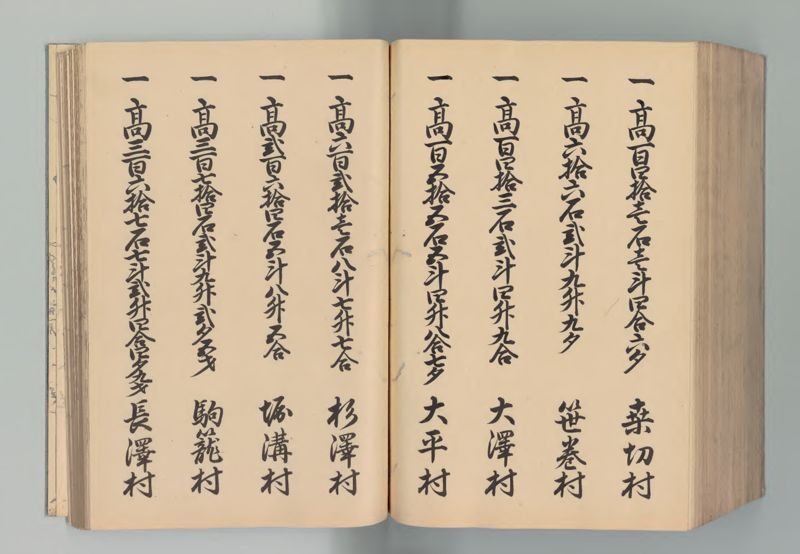 一高百四拾壱石壱斗四合六夕 桑切村
一高六拾六石弐斗九升九夕 笹巻村
一高百四拾三石弐斗四升九合 大澤村
一高百五拾五石五斗四升八合七夕 大平村
一高六百弐拾壱石八斗七升七合 杉澤村
一高弐百六拾四石五斗八升五合 堀溝村
一高三百七拾四石弐斗九升弐夕五才 駒籠村
一高三百六拾七石七斗弐升四合四夕九才 長澤村